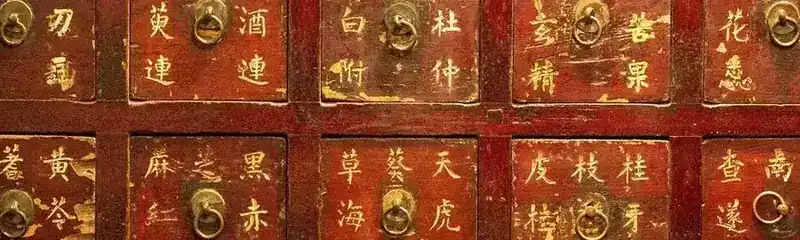 刀
酒連
萸連
杜仲
白附
苦果
玄精
花
黄芩
黑芝麻
赤
紅
天葵草
虎
海
桂枝皮
牙
桂
南
查
遂